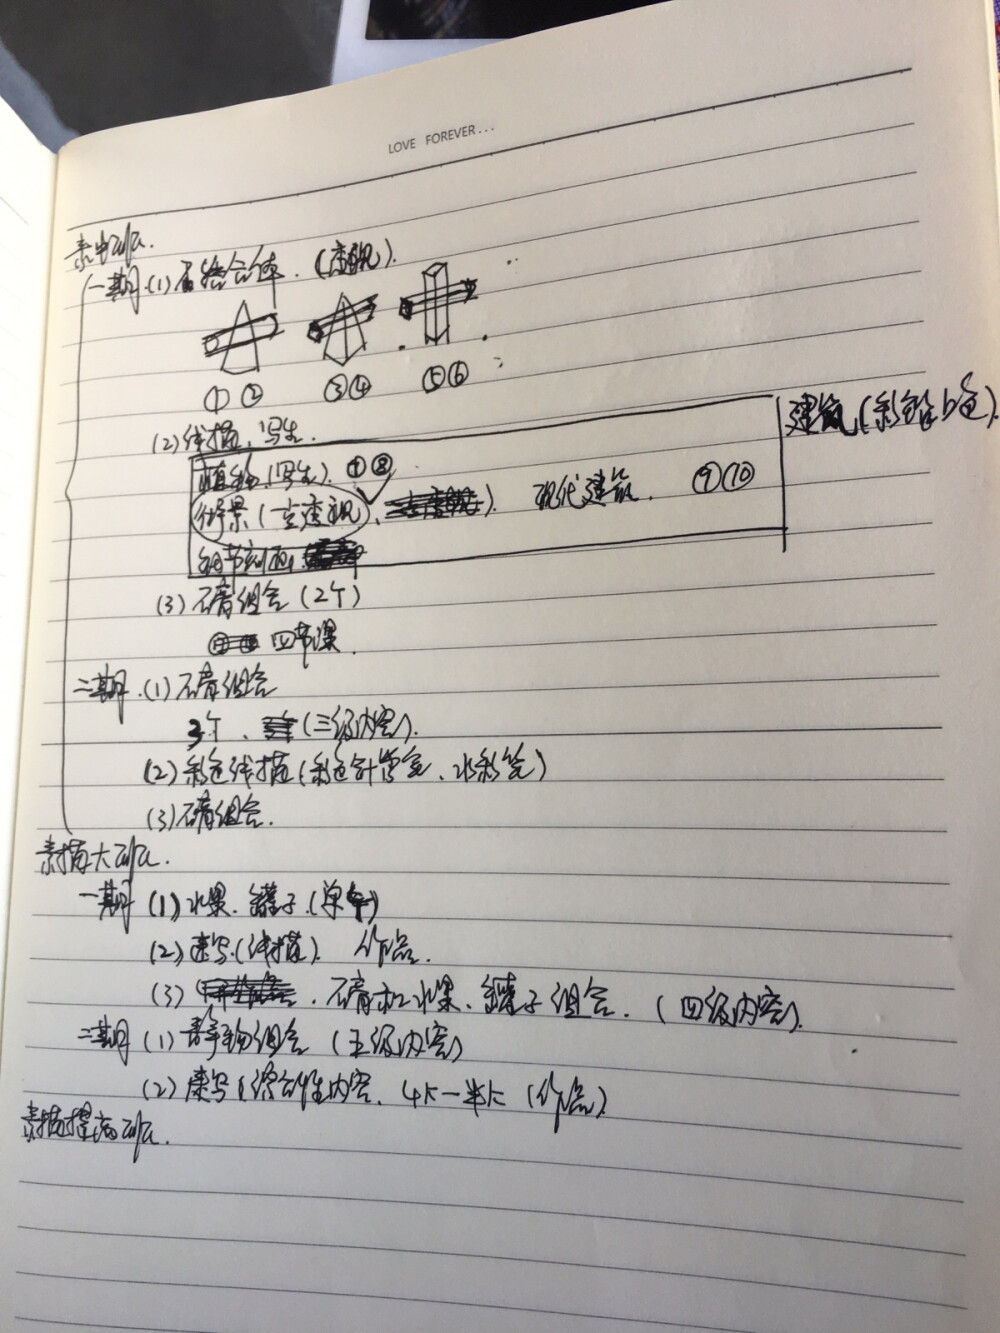 LOVE FOREVER...
素中班.
一期.(1)石结合体.(透视).
① ② ③④ ⑤⑥
(2)线描、写生.
建筑(彩铅上色).
植物(写生). ⑦⑧
街景(一点透视、 ). 现代建筑. ⑨⑩
细节刻画
(3)石膏组合(2个)
四节课.
二期.(1)石膏组合
3个、 (三级内容).
(2)彩色线描(彩色针管笔、水彩笔)
(3)石膏组合.
素描大班.
一期(1)水果.罐子.(单个)
(2)速写.(线描). 作品.
(3) .石膏和水果、罐子组合.(四级内容).
二期(1)静物组合(五级内容)
(2)速写(综合性内容.4K-半K(作品).
素描提高班.